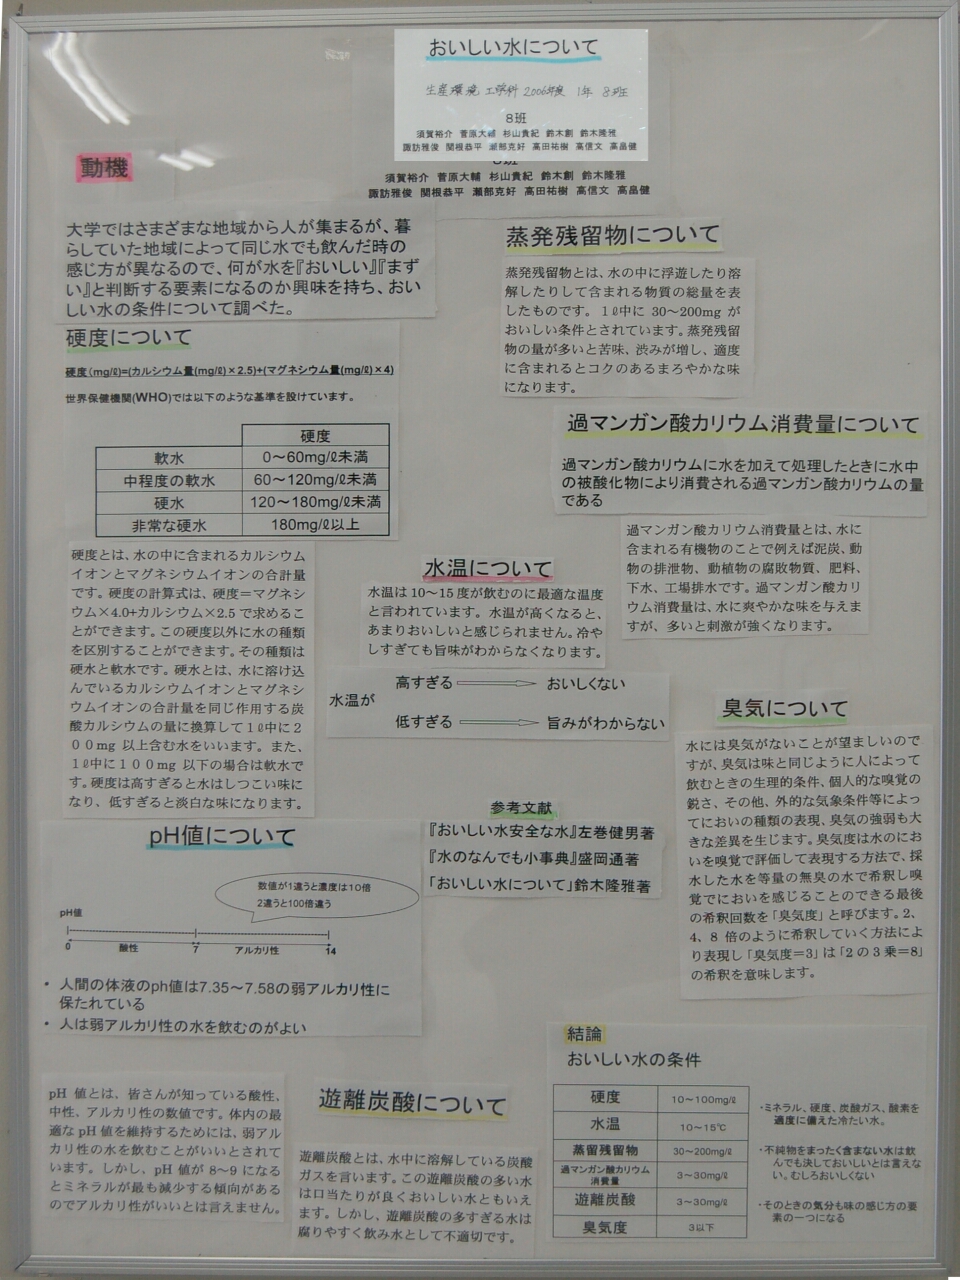 おいしい水について
生産環境工学科 2006年度 1年 8班
8班
須賀裕介 菅原大輔 杉山貴紀 鈴木創 鈴木隆雅
諏訪雅俊 関根恭平 瀬部克好 高田祐樹 高信文 高畠健
8班
須賀裕介 菅原大輔 杉山貴紀 鈴木創 鈴木隆雅
諏訪雅俊 関根恭平 瀬部克好 高田祐樹 高信文 高畠健
動機
大学ではさまざまな地域から人が集まるが、暮
らしていた地域によって同じ水でも飲んだ時の
感じ方が異なるので、何が水を『おいしい』『まず
い』と判断する要素になるのか興味を持ち、おい
しい水の条件について調べた。
硬度について
硬度(mg/ℓ)=(カルシウム量(mg/ℓ)×2.5)+(マグネシウム量(mg/ℓ)×4)
世界保健機関(WHO)では以下のような基準を設けています。
硬度
軟水 0～60mg/ℓ未満
中程度の軟水 60～120mg/ℓ未満
硬水 120～180mg/ℓ未満
非常な硬水 180mg/ℓ以上
硬度とは、水の中に含まれるカルシウム
イオンとマグネシウムイオンの合計量
です。硬度の計算式は、硬度＝マグネシ
ウム×4.0+カルシウム×2.5 で求めるこ
とができます。この硬度以外に水の種類
を区別することができます。その種類は
硬水と軟水です。硬水とは、水に溶け込
んでいるカルシウムイオンとマグネシ
ウムイオンの合計量を同じ作用する炭
酸カルシウムの量に換算して１ℓ中に２
００mg 以上含む水をいいます。また、
１ℓ中に１００mg 以下の場合は軟水で
す。硬度は高すぎると水はしつこい味に
なり、低すぎると淡白な味になります。
蒸発残留物について
蒸発残留物とは、水の中に浮遊したり溶
解したりして含まれる物質の総量を表
したものです。１ℓ中に 30～200mg が
おいしい条件とされています。蒸発残留
物の量が多いと苦味、渋みが増し、適度
に含まれるとコクのあるまろやかな味
になります。
過マンガン酸カリウム消費量について
過マンガン酸カリウムに水を加えて処理したときに水中
の被酸化物により消費される過マンガン酸カリウムの量
である
過マンガン酸カリウム消費量とは、水に
含まれる有機物のことで例えば泥炭、動
物の排泄物、動植物の腐敗物質、肥料、
下水、工場排水です。過マンガン酸カリ
ウム消費量は、水に爽やかな味を与えま
すが、多いと刺激が強くなります。
水温について
水温は 10～15 度が飲むのに最適な温度
と言われています。水温が高くなると、
あまりおいしいと感じられません。冷や
しすぎても旨味がわからなくなります。
水温が
高すぎる おいしくない
低すぎる 旨みがわからない
臭気について
水には臭気がないことが望ましいので
すが、臭気は味と同じように人によって
飲むときの生理的条件、個人的な嗅覚の
鋭さ、その他、外的な気象条件等によっ
てにおいの種類の表現、臭気の強弱も大
きな差異を生じます。臭気度は水のにお
いを嗅覚で評価して表現する方法で、採
水した水を等量の無臭の水で希釈し嗅
覚でにおいを感じることのできる最後
の希釈回数を「臭気度」と呼びます。2、
4、8 倍のように希釈していく方法によ
り表現し「臭気度=3」は「2 の 3 乗=8」
の希釈を意味します。
参考文献
『おいしい水安全な水』左巻健男著
『水のなんでも小事典』盛岡通著
「おいしい水について」鈴木隆雅著
pH値について
数値が1違うと濃度は10倍
2違うと100倍違う
pH値
0 酸性 7 アルカリ性 14
・人間の体液のph値は7.35～7.58の弱アルカリ性に
保たれている
・人は弱アルカリ性の水を飲むのがよい
pH 値とは、皆さんが知っている酸性、
中性、アルカリ性の数値です。体内の最
適な pH 値を維持するためには、弱アル
カリ性の水を飲むことがいいとされて
います。しかし、pH 値が 8～9 になる
とミネラルが最も減少する傾向がある
のでアルカリ性がいいとは言えません。
遊離炭酸について
遊離炭酸とは、水中に溶解している炭酸
ガスを言います。この遊離炭酸の多い水
は口当たりが良くおいしい水ともいえ
ます。しかし、遊離炭酸の多すぎる水は
腐りやすく飲み水として不適切です。
結論
おいしい水の条件
硬度 10～100mg/ℓ
水温 10～15℃
蒸留残留物 30～200mg/ℓ
過マンガン酸カリウム
消費量 3～30mg/ℓ
遊離炭酸 3～30mg/ℓ
臭気度 3以下
・ミネラル、硬度、炭酸ガス、酸素を
適度に備えた冷たい水。
・不純物をまったく含まない水は飲
んでも決しておいしいとは言えな
い。むしろおいしくない
・そのときの気分も味の感じ方の要
素の一つになる